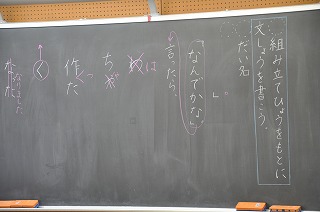 組み立てひょうをもとに、
文しょうを書こう。
だい名
「なんでかな」
言ったら
」。
は
ち
作った
く
なりました